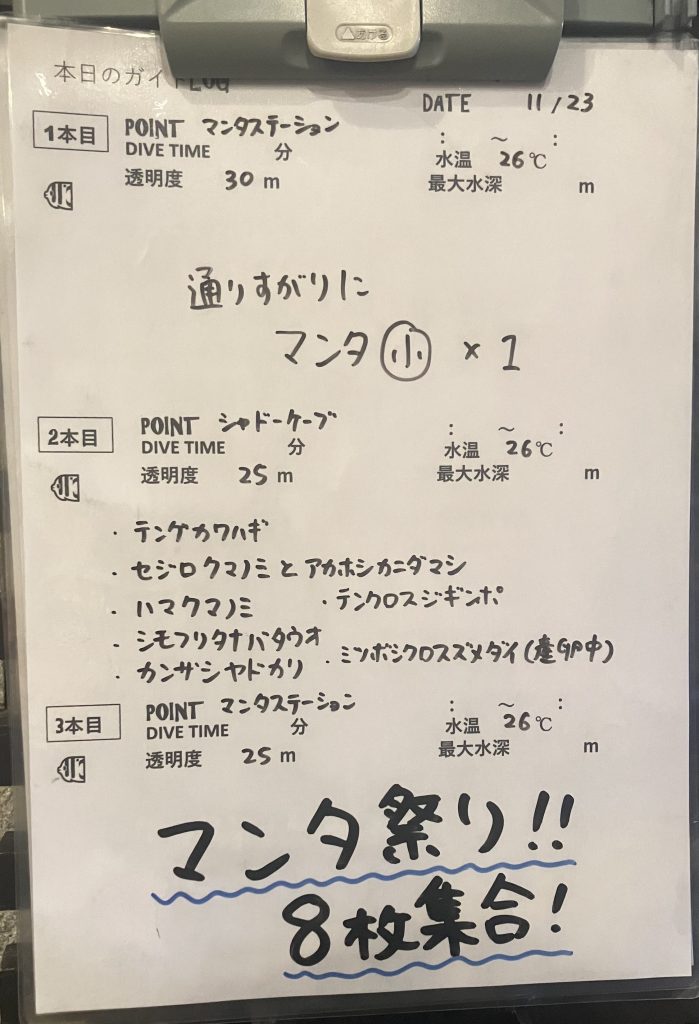 △あける
本日のガイドLOG
DATE 11/23
1本目 POINT マンタステーション : ～ :
DIVE TIME 分 水温 26℃
透明度 30 m 最大水深 m
通りすがりに
マンタ 小 × 1
2本目 POINT シャドーケーブ : ～ :
DIVE TIME 分 水温 26℃
透明度 25 m 最大水深 m
・テングカワハギ
・セジロクマノミとアカホシカニダマシ
・ハマクマノミ ・テンクロスジギンポ
・シモフリタナバタウオ
・カンザシヤドカリ ・ミツボシクロスズメダイ(産卵中)
3本目 POINT マンタステーション : ～ :
DIVE TIME 分 水温 26℃
透明度 25 m 最大水深 m
マンタ祭り!!
8枚集合!